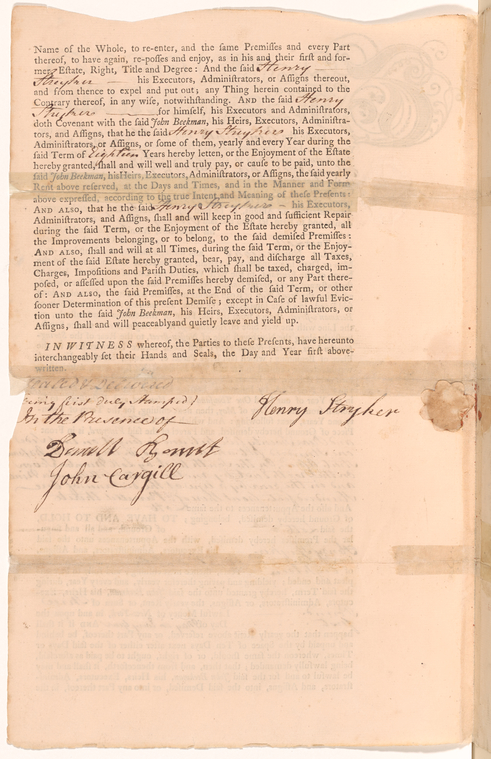 Name of the Whole, to re-enter, and the same Premiſſes and every Part
thereof, to have again, re-poſſes and enjoy, as in his and their firſt and for-
mer Eſtate, Right, Title and Degree: And the ſaid Henry
Stryker his Executors, Adminiſtrators, or Aſſigns thereout,
and from thence to expel and put out; any Thing herein contained to the
Contrary thereof, in any wiſe, notwithſtanding. AND the ſaid Henry
Stryker for himſelf, his Executors and Adminiſtrators,
doth Covenant with the ſaid John Beekman, his Heirs, Executors, Adminiſtra-
tors, and Aſſigns, that he the ſaid Henry Stryker his Executors,
Adminiſtrators, or Aſſigns, or ſome of them, yearly and every Year during the
ſaid Term of Eighteen Years hereby letten, or the Enjoyment of the Eſtate
hereby granted, ſhall and will well and truly pay, or cauſe to be paid, unto the
ſaid John Beekman, his Heirs, Executors, Adminiſtrators, or Aſſigns, the ſaid yearly
Rent above reſerved, at the Days and Times, and in the Manner and Form
above expreſſed, according to the true Intent and Meaning of theſe Preſents:
AND ALSO, that he the ſaid Henry Stryker his Executors,
Adminiſtrators, and Aſſigns, ſhall and will keep in good and ſufficient Repair
during the ſaid Term, or the Enjoyment of the Eſtate hereby granted, all
the Improvements belonging, or to belong, to the ſaid demiſed Premiſſes:
AND ALSO, ſhall and will at all Times, during the ſaid Term, or the Enjoy-
ment of the ſaid Eſtate hereby granted, bear, pay, and diſcharge all Taxes,
Charges, Impoſitions and Pariſh Duties, which ſhall be taxed, charged, im-
poſed, or aſſeſſed upon the ſaid Premiſſes hereby demiſed, or any Part there-
of: AND ALSO, the ſaid Premiſſes, at the End of the ſaid Term, or other
ſooner Determination of this preſent Demiſe; except in Caſe of lawful Evic-
tion unto the ſaid John Beekman, his Heirs, Executors, Adminiſtrators, or
Aſſigns, ſhall and will peaceably and quietly leave and yield up.
IN WITNESS whereof, the Parties to theſe Preſents, have hereunto
interchangeably ſet their Hands and Seals, the Day and Year firſt above-
written.
Sealed & Delivered
being first duly stamped
In the Presence of
Henry Stryker
John Cargill